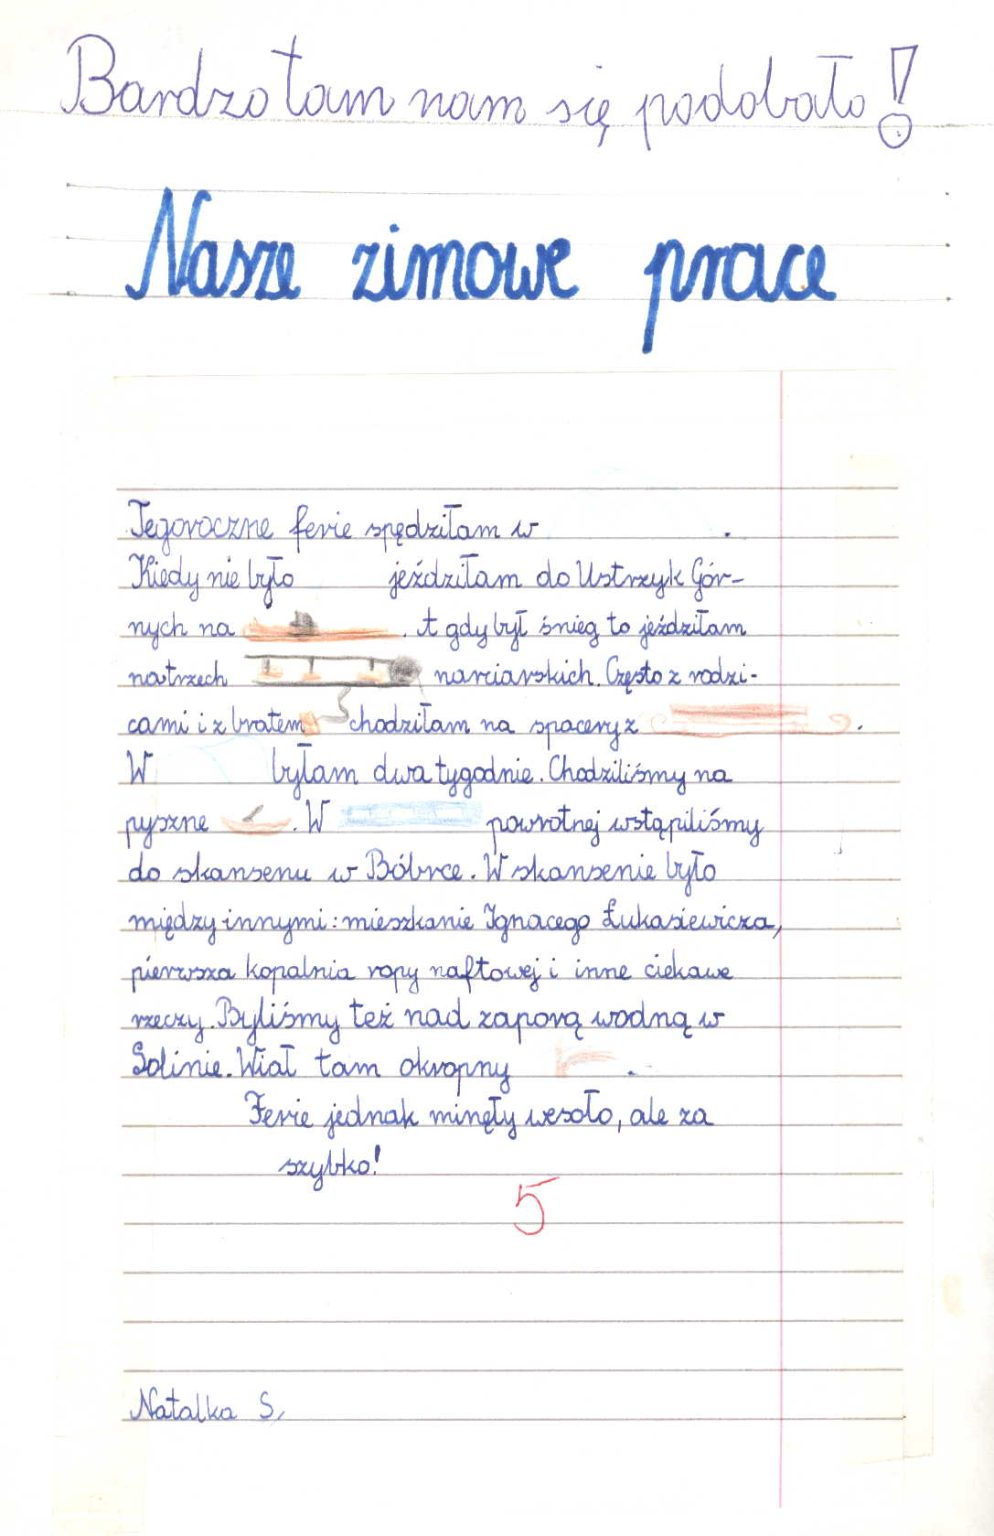 Bardzo tam nam się podobało!
Nasze zimowe prace
Tegoroczne ferie spędziłam w .
Kiedy nie było jeździłam do Ustrzyk Gór-
nych na . A gdy był śnieg to jeździłam
na trzech narciarskich. Często z rodzi-
cami i z bratem chodziłam na spacery z .
W byłam dwa tygodnie. Chodziliśmy na
pyszne . W powrotnej wstąpiliśmy
do skansenu w Bóbrce. W skansenie było
między innymi: mieszkanie Ignacego Łukasiewicza,
pierwsza kopalnia ropy naftowej i inne ciekawe
rzeczy. Byliśmy też nad zaporą wodną w
Solinie. Wiał tam okropny .
Ferie jednak minęły wesoło, ale za
szybko!
5
Natalka S.